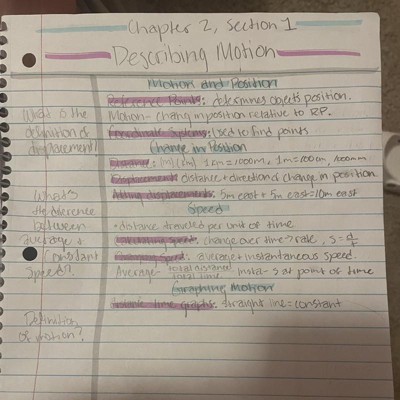 Chapter 2, Section 1
Describing Motion
Motion and Position
Reference Points: determines objects position.
What is the definition of displacement?
Motion- change in position relative to RP.
Coordinate Systems: Used to find points
Change in Position
Distance: (m) (km) 1km=1000m, 1m=100cm, 1000mm
Displacement: distance + direction of change in position
What's the difference between average & constant speed?
Adding displacements: 5m east + 5m east=10m east
Speed
•distance traveled per unit of time
Calculating speed: change over time → rate, s=d/t
Changing Speed: average + instantaneous speed.
Average- total distance/total time insta- s at point of time
Graphing Motion
Definition of motion?
distance time graphs: straight line=constant